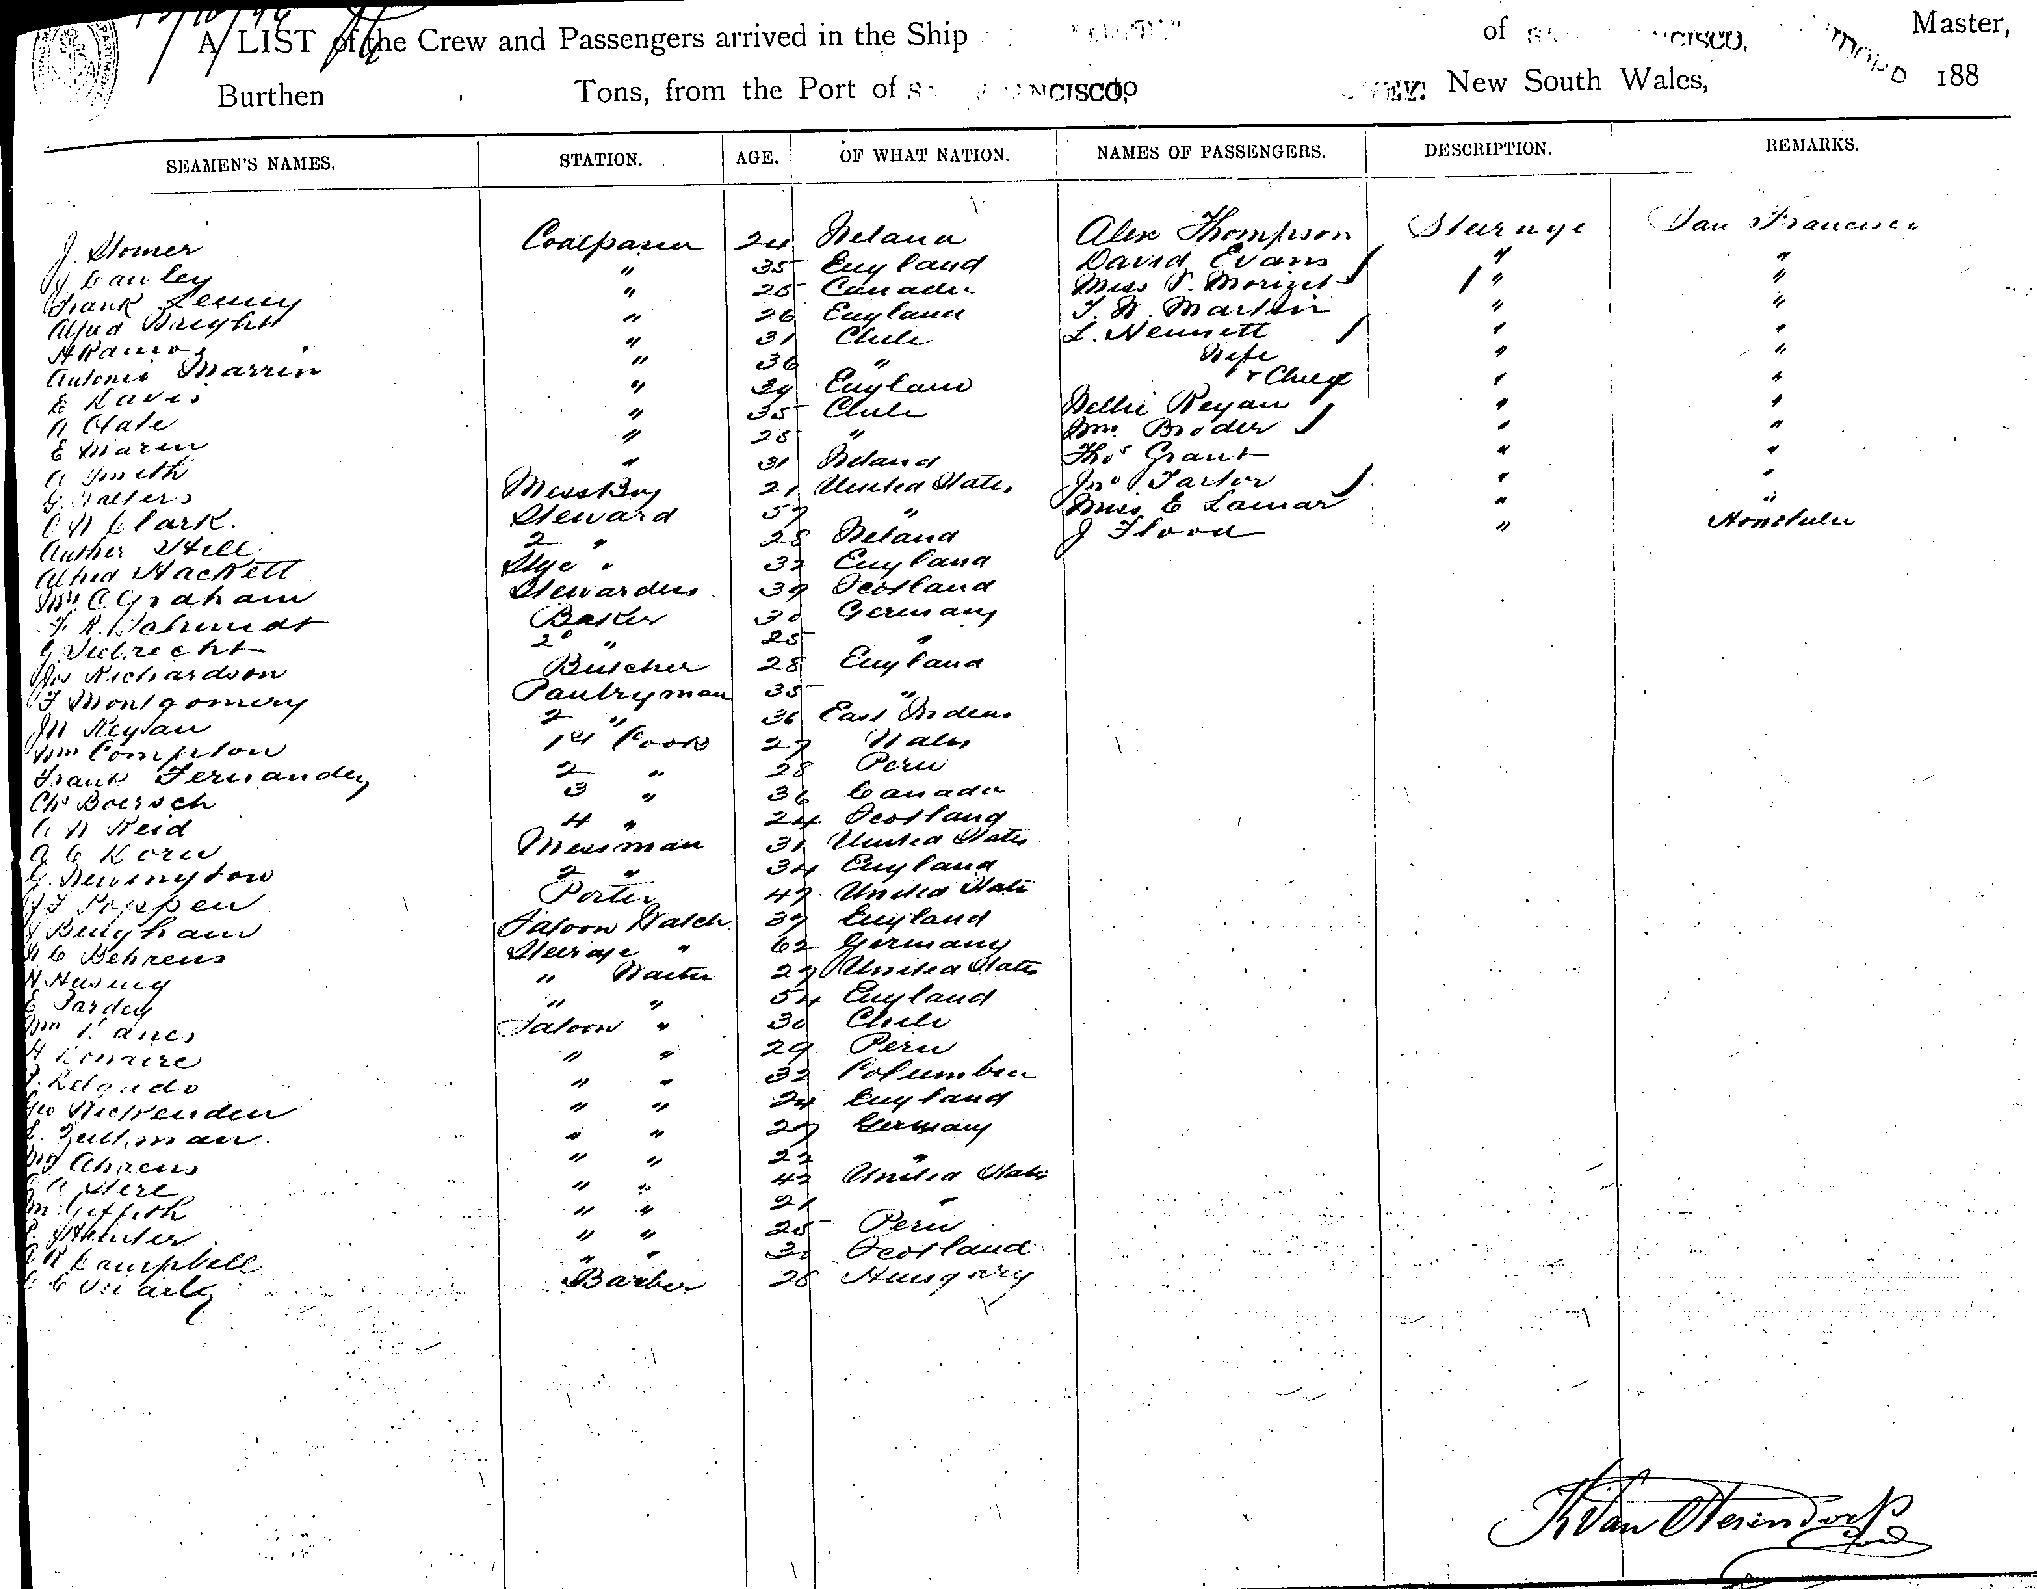 A LIST of the Crew and Passengers arrived in the Ship of CISCO, Master,
Burthen Tons, from the Port of NCISCO, New South Wales, 188
SEAMEN'S NAMES. STATION. AGE. OF WHAT NATION. NAMES OF PASSENGERS. DESCRIPTION. REMARKS.
J. Stomer Coalpasser 24 Ireland Alex Thompson Steerage San Francisco
J Cauley " 35 England David Evans " "
Frank Lenny " 25 Canada Miss S. " "
Alfred Bright " 26 England T. W. Martin " "
A Ramos " 31 Chile L. Nennett " "
Antonio Marrin " 36 " Wife " "
E Davis " 39 England + " "
A Olate " 35 Chile Nellie Reyan " "
E Marin " 28 " Wm. Broder " "
A Smith " 31 Ireland Thos Grant " "
G. Walters Mess Boy 21 United States Jno Tartor " "
C N Clark. Steward 57 " Miss E Lamar " "
Auther Hill 2 " 28 Ireland J Flood " Honolulu
Alfred Hackett Stge " 32 England
Mrs C Graham Stewardess 39 Scotland
F. R. Schmidt Baker 30 Germany
G Viebrecht 2d " 25 "
Jos Richardson Butcher 28 England
T Montgomery Pantryman 35 "
JN Reyau 2 " 36 East Indies
Wm Compton 1st Cook 27 Wales
Frank Fernandez 2 " 28 Peru
Chs Boersch 3 " 36 Canada
A N Reid 4 " 24 Scotland
A C Korn Messman 31 United States
G. Newington 2 " 34 England
J F Poppen Porter 47 United States
J Bingham Saloon Watch 37 England
H C Behrens Steerage " 62 Germany
H Husing " Waiter 29 United States
E Pardey " " 54 England
Wm Saloon " 30 Chile
H " " 29 Peru
P. Delgado " " 32 Columbia
Geo Wickenden " " 24 England
E. Zullman " " 27 Germany
Wm Ahrens " " 22 "
G A Stere " " 42 United States
M. Giffith " " 21 "
P. Hunter " " 25 Peru
A R Campbell " " 32 Scotland
C C Barber 26 Hungary
K Van Oterendorp